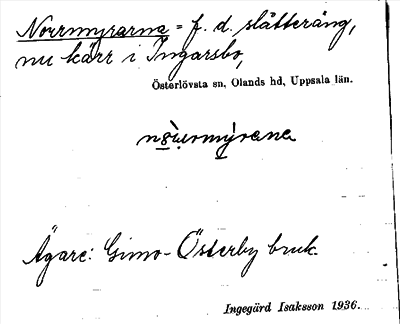 Norrmyrarna = f. d. slätteräng,
nu kärr i Ingarsbo,
Österlövsta sn, Olands hd, Uppsala län.
Ägare: Gimo-Österby bruk.
Ingegärd Isaksson 1936.